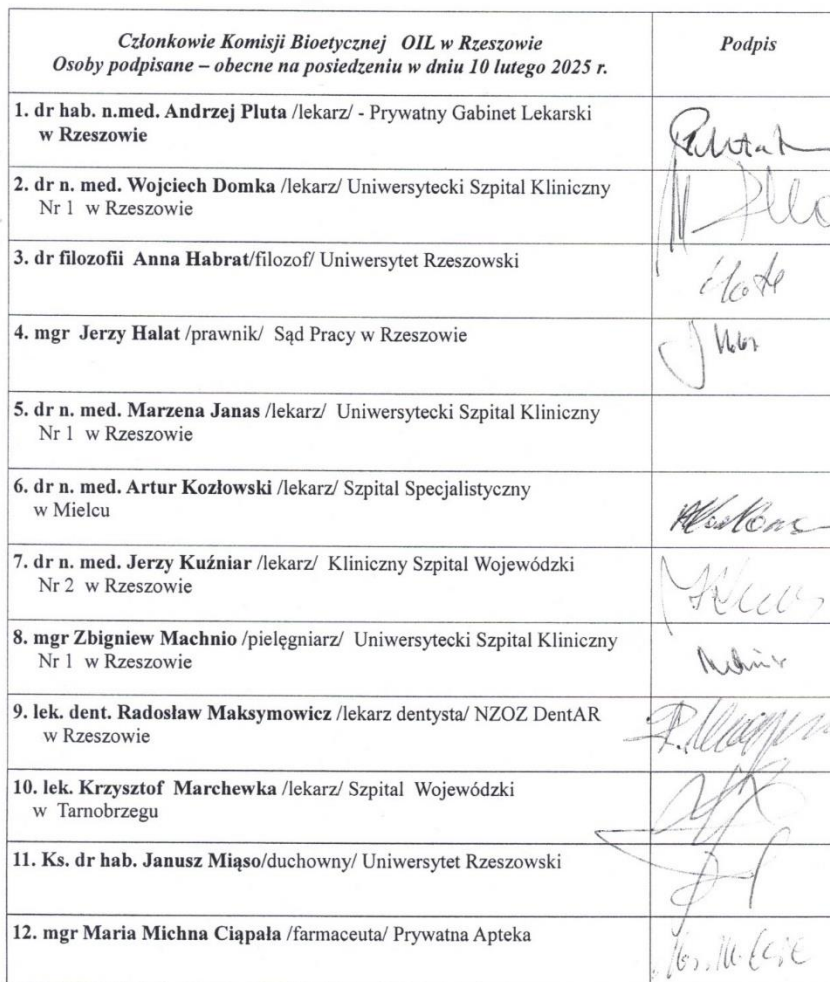 Członkowie Komisji Bioetycznej OIL w Rzeszowie
Osoby podpisane – obecne na posiedzeniu w dniu 10 lutego 2025 r.
Podpis
1. dr hab. n.med. Andrzej Pluta /lekarz/ - Prywatny Gabinet Lekarski
w Rzeszowie
2. dr n. med. Wojciech Domka /lekarz/ Uniwersytecki Szpital Kliniczny
Nr 1 w Rzeszowie
3. dr filozofii Anna Habrat/filozof/ Uniwersytet Rzeszowski
4. mgr Jerzy Halat /prawnik/ Sąd Pracy w Rzeszowie
5. dr n. med. Marzena Janas /lekarz/ Uniwersytecki Szpital Kliniczny
Nr 1 w Rzeszowie
6. dr n. med. Artur Kozłowski /lekarz/ Szpital Specjalistyczny
w Mielcu
7. dr n. med. Jerzy Kuźniar /lekarz/ Kliniczny Szpital Wojewódzki
Nr 2 w Rzeszowie
8. mgr Zbigniew Machnio /pielęgniarz/ Uniwersytecki Szpital Kliniczny
Nr 1 w Rzeszowie
9. lek. dent. Radosław Maksymowicz /lekarz dentysta/ NZOZ DentAR
w Rzeszowie
10. lek. Krzysztof Marchewka /lekarz/ Szpital Wojewódzki
w Tarnobrzegu
11. Ks. dr hab. Janusz Miąso/duchowny/ Uniwersytet Rzeszowski
12. mgr Maria Michna Ciąpała /farmaceuta/ Prywatna Apteka